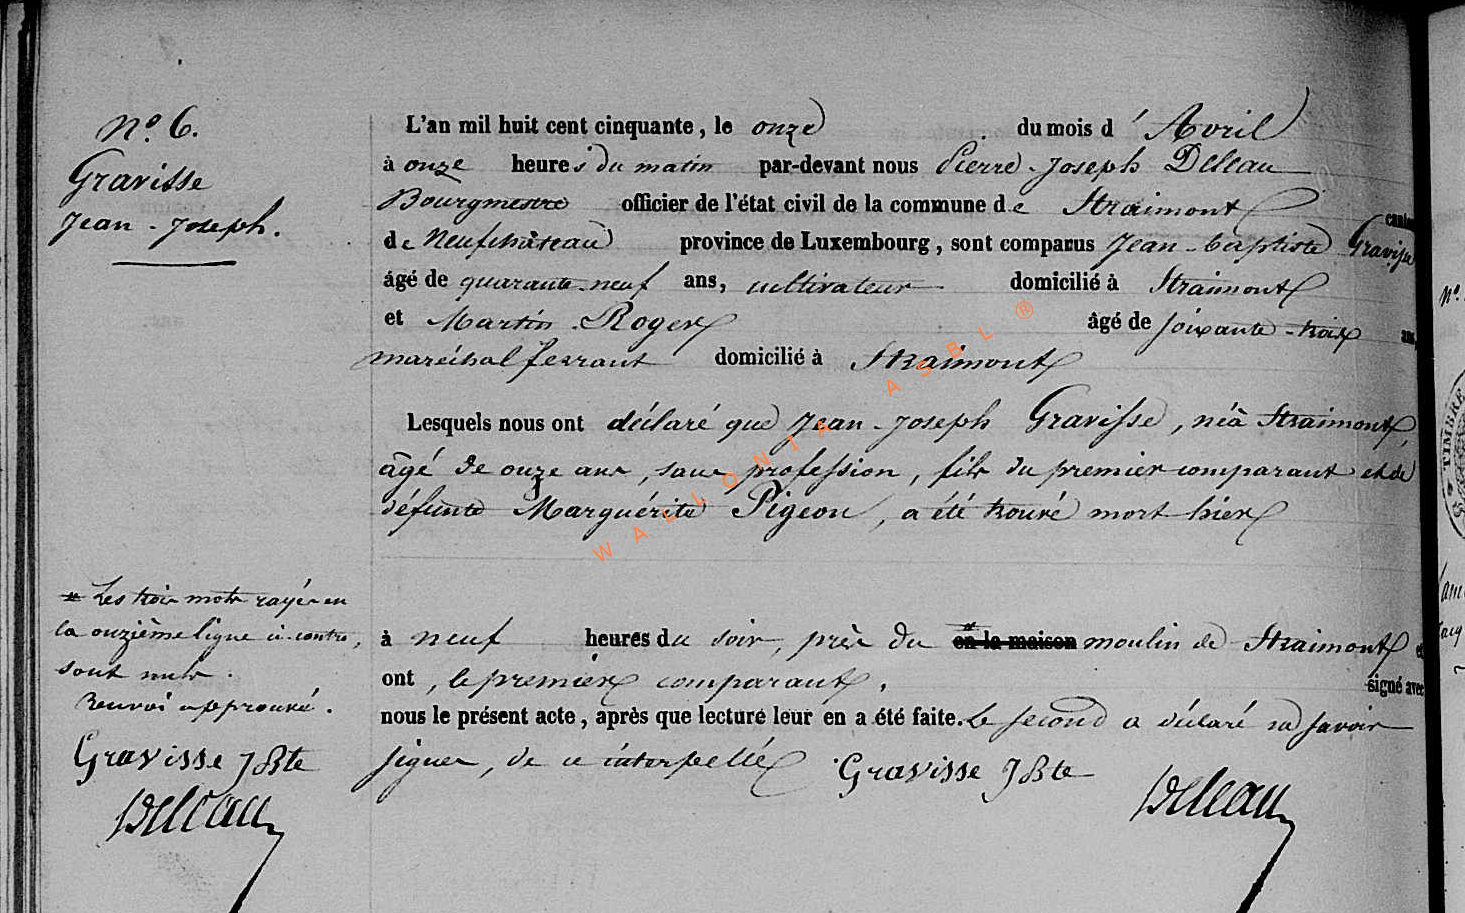 N.º 6.
Gravisse
Jean-Joseph.
L'an mil huit cent cinquante, le onze du mois d'Avril
à onze heures du matin par-devant nous Pierre-Joseph Deleau
Bourgmestre officier de l'état civil de la commune de Straimont canton
de Neufchâteau province de Luxembourg, sont comparus Jean-baptiste Gravisse
âgé de quarante-neuf ans, cultivateur domicilié à Straimont
et Martin Roger âgé de soixante-trois ans,
maréchal ferrant domicilié à Straimont
Lesquels nous ont déclaré que Jean-Joseph Gravisse, né à Straimont,
âgé de onze ans, sans profession, fils du premier comparant et de
défunte Marguérite Pigeon, a été trouvé mort hier
à neuf heures du soir, près du en la maison moulin de Straimont et
ont, le premier comparant, signé avec
nous le présent acte, après que lecture leur en a été faite. Le second a déclaré ne savoir
signer, de ce interpellé
Gravisse JBte
Deleau
Les trois mots rayés en
la onzième ligne ci-contre,
sont nuls.
Renvoi approuvé.
Gravisse JBte
Deleau
WALLONIA ASBL ®
TIMBRE
N.º